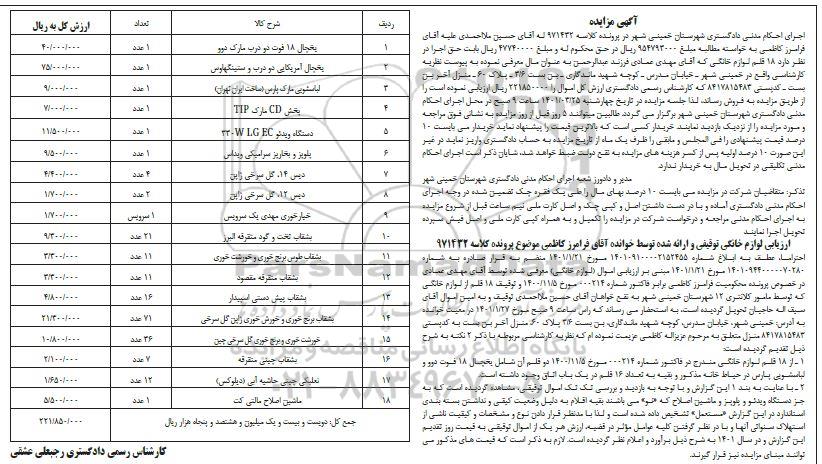 آگهی مزایده
اجرای احکام مدنی دادگستری شهرستان خمینی شهر در پرونده کلاسه ۹۷۱۴۳۲ له آقای حسین ملاحمدی علیه آقای
فرامرز کاظمی به خواسته مطالبه مبلغ ۹۵۴۷۹۳۰۰۰ ریال در حق محکوم له و مبلغ ۴۷۷۴۰۰۰۰ ریال بابت حق اجرا در
نظر دارد ۱۸ قلم لوازم خانگی که آقای مهدی عمادی فرزند عبدالرحمن به عنوان مال معرفی نموده به پیوست نظریه
کارشناسی واقع در خمینی شهر - خیابان مدرس - کوچه شهید ماندگاری - بن بست ۳/۶ - پلاک ۶۰ - منزل آخر بن
بست - کدپستی ۸۴۱۷۸۱۵۴۸۳ که کارشناس رسمی دادگستری ارزش کل اموال را ۲۲۱۸۵۰۰۰۰ ریال ارزیابی نموده است را
از طریق مزایده به فروش رساند، لذا جلسه مزایده در تاریخ چهارشنبه ۱۴۰۱/۰۳/۲۵ ساعت ۹ صبح در محل اجرای احکام
مدنی دادگستری شهرستان خمینی شهر برگزار می گردد. طالبین میتوانند ۵ روز قبل از روز مزایده به نشانی فوق مراجعه
و مورد مزایده را از نزدیک بازدید نمایند. خریدار کسی است که بالاترین قیمت را پیشنهاد نماید خریدار می بایست ۱۰
درصد قیمت پیشنهادی را فی المجلس و مابقی را ظرف یک ماه از تاریخ مزایده به حساب دادگستری واریز نماید در غیر
این صورت ۱۰ درصد اولیه پس از کسر هزینه های مزایده به نفع دولت ضبط خواهد شد، شایان ذکر است اجرای احکام
مدنی تکلیفی در تحویل مال به خریدار ندارد.
مدیر و دادورز شعبه اجرای احکام مدنی دادگستری شهرستان خمینی شهر
تذکر: متقاضیان شرکت در مزایده می بایست ۱۰ درصد بهای مال را طی یک فقره چک تضمین شده در وجه اجرای
احکام مدنی دادگستری آماده و با در دست داشتن اصل و کپی چک و اصل کارت ملی نیم ساعت قبل از شروع مزایده
به اجرای احکام مدنی مراجعه و درخواست شرکت در مزایده را تکمیل و به همراه کپی کارت ملی و اصل فیش سپرده
تحویل اجرا نمایند
ارزیابی لوازم خانگی توقیفی و ارائه شده توسط خوانده آقای فرامرز کاظمی موضوع پرونده کلاسه ۹۷۱۴۳۲
احتراما، عطف به ابلاغ شماره ۱۴۰۱۰۹۱۰۰۰۰۲۱۵۲۴۵۵ مورخ ۱۴۰۱/۱/۲۱ منضم به قرار صادره به شماره
۱۴۰۱۰۹۴۴۰۰۰۰۰۷۰۲۸۰ مورخ ۱۴۰۱/۱/۲۱ مبنی بر ارزیابی اموال (لوازم خانگی) معرفی شده توسط آقای مهدی عمادی
در خصوص پرونده محکومیت فرامرز کاظمی برابر فاکتور شماره ۰۰۰۲۱۴ مورخ ۱۴۰۰/۱۱/۵ و توقیف ۱۸ قلم از لوازم خانگی
که توسط مامور کلانتری ۱۲ شهرستان خمینی شهر به نفع خواهان آقای حسین ملاحمدی توقیف و به امین اموال آقای
سیف اله حاجیان تحویل گردیده است، به استحضار می رساند که راس ساعت ۹ صبح مورخ ۱۴۰۱/۱/۲۷ در معیت خوانده
به آدرس: خمینی شهر، خیابان مدرس، کوچه شهید ماندگاری، بن بست ۳/۶ پلاک ۶۰ منزل آخر بن بست به کدپستی
۸۴۱۷۸۱۵۴۸۳ منزل متعلق به مرحوم عزیزاله کاظمی عزیمت نموده ام که نظریه کارشناسی مربوطه با ذکر ۲ نکته به شرح
ذیل تقدیم گردیده است:
۱ - از ۱۸ قلم لوازم خانگی مندرج در فاکتور شماره ۰۰۰۲۱۴ مورخ ۱۴۰۰/۱۱/۵ دو قلم آن شامل یخچال ۱۸ فوت دوو و
لباسشویی پارس در حیاط خانه مذکور و بقیه به تعداد ۱۶ قلم در یک باب اتاق وجود داشته است.
۲ - با عنایت به بند ۱ این گزارش و با توجه به بازدید و بررسی تک تک اموال توقیفی، مشاهده گردیده است که به
جز دستگاه ویدئو و پلوپز و ماشین اصلاح که «نو» می باشند بقیه اقلام به دلیل وضعیت کیفی و نداشتن بسته بندی
استاندارد در این گزارش «مستعمل» تشخیص داده شده است و لذا با مدنظر قرار دادن نوع و مشخصات و کیفیت ناشی از
استهلاک سنواتی آنها و با در نظر گرفتن کلیه عوامل مؤثر در قضیه، ارزش هر یک از اموال توقیفی به قیمت روز تقدیم
این گزارش و در سال ۱۴۰۱ به شرح ذیل برآورد و اعلام نظر گردیده است. لازم به ذکر است که قیمت های مذکور می
توانند مبنای مزایده نیز قرار گیرند.
ردیف شرح کالا تعداد ارزش کل به ریال
۱ یخچال ۱۸ فوت دو درب مارک دوو ۱ عدد ۴۰/۰۰۰/۰۰۰
۲ یخچال آمریکایی دو درب و ستینگهاوس ۱ عدد ۷۵/۰۰۰/۰۰۰
۳ لباسشویی مارک پارس (ساخت ایران تهران) ۱ عدد ۹/۰۰۰/۰۰۰
۴ پخش CD مارک TIP ۱ عدد ۷/۰۰۰/۰۰۰
۵ دستگاه ویدئو ۳۳۰W LG EC ۱ عدد ۱۱/۵۰۰/۰۰۰
۶ پلوپز و بخارپز سرامیکی ویداس ۱ عدد ۹/۵۰۰/۰۰۰
۷ دیس ۱۴، گل سرخی ژاپن ۴ عدد ۴/۴۰۰/۰۰۰
۸ دیس ۱۲، گل سرخی ژاپن ۲ عدد ۱/۷۰۰/۰۰۰
۹ خیارخوری مهدی یک سرویس ۱ سرویس ۱/۷۰۰/۰۰۰
۱۰ بشقاب تخت و گود متفرقه البرز ۲۱ عدد ۹/۳۰۰/۰۰۰
۱۱ بشقاب طوس برنج خوری و خورشت خوری ۱۱ عدد ۳/۳۰۰/۰۰۰
۱۲ بشقاب متفرقه مقصود ۱۱ عدد ۳/۳۰۰/۰۰۰
۱۳ بشقاب پیش دستی اسپیدار ۱۶ عدد ۴/۸۰۰/۰۰۰
۱۴ بشقاب برنج خوری و خورش خوری ژاپن گل سرخی ۷۱ عدد ۲۱/۳۰۰/۰۰۰
۱۵ خورشت خوری و برنج خوری گل سرخی چین ۳۶ عدد ۱۰/۸۰۰/۰۰۰
۱۶ بشقاب چینی متفرقه ۷ عدد ۲/۱۰۰/۰۰۰
۱۷ نعلبکی چینی حاشیه آبی (دیلوکس) ۱۲ عدد ۱/۶۵۰/۰۰۰
۱۸ ماشین اصلاح مالتی کت ۱ عدد ۵/۵۰۰/۰۰۰
جمع کل: دویست و بیست و یک میلیون و هشتصد و پنجاه هزار ریال ۲۲۱/۸۵۰/۰۰۰
کارشناس رسمی دادگستری رجبعلی عشقی